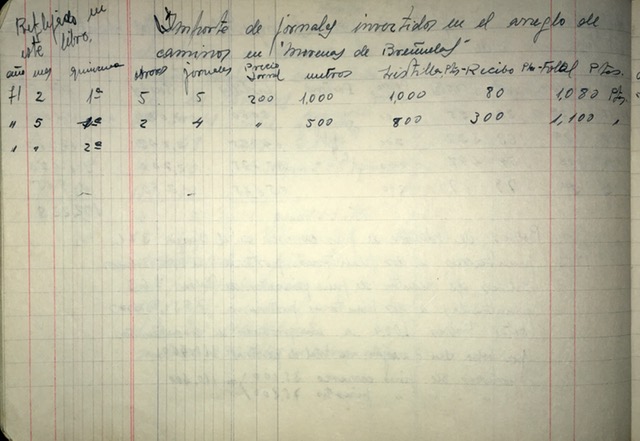 Reflejado en
este libro.
Importe de jornales invertidos en el arreglo de
caminos en "Morenas de Breñuelas"
año mes quincena obreros jornales Precio Jornal metros Listilla Pts - Recibo Pts - Total Ptas.
71 2 1ª 5 5 200 1,000 1,000 80 1,080 Pts.
" 5 1ª 2 4 " 500 800 300 1,100 "
" " 2ª